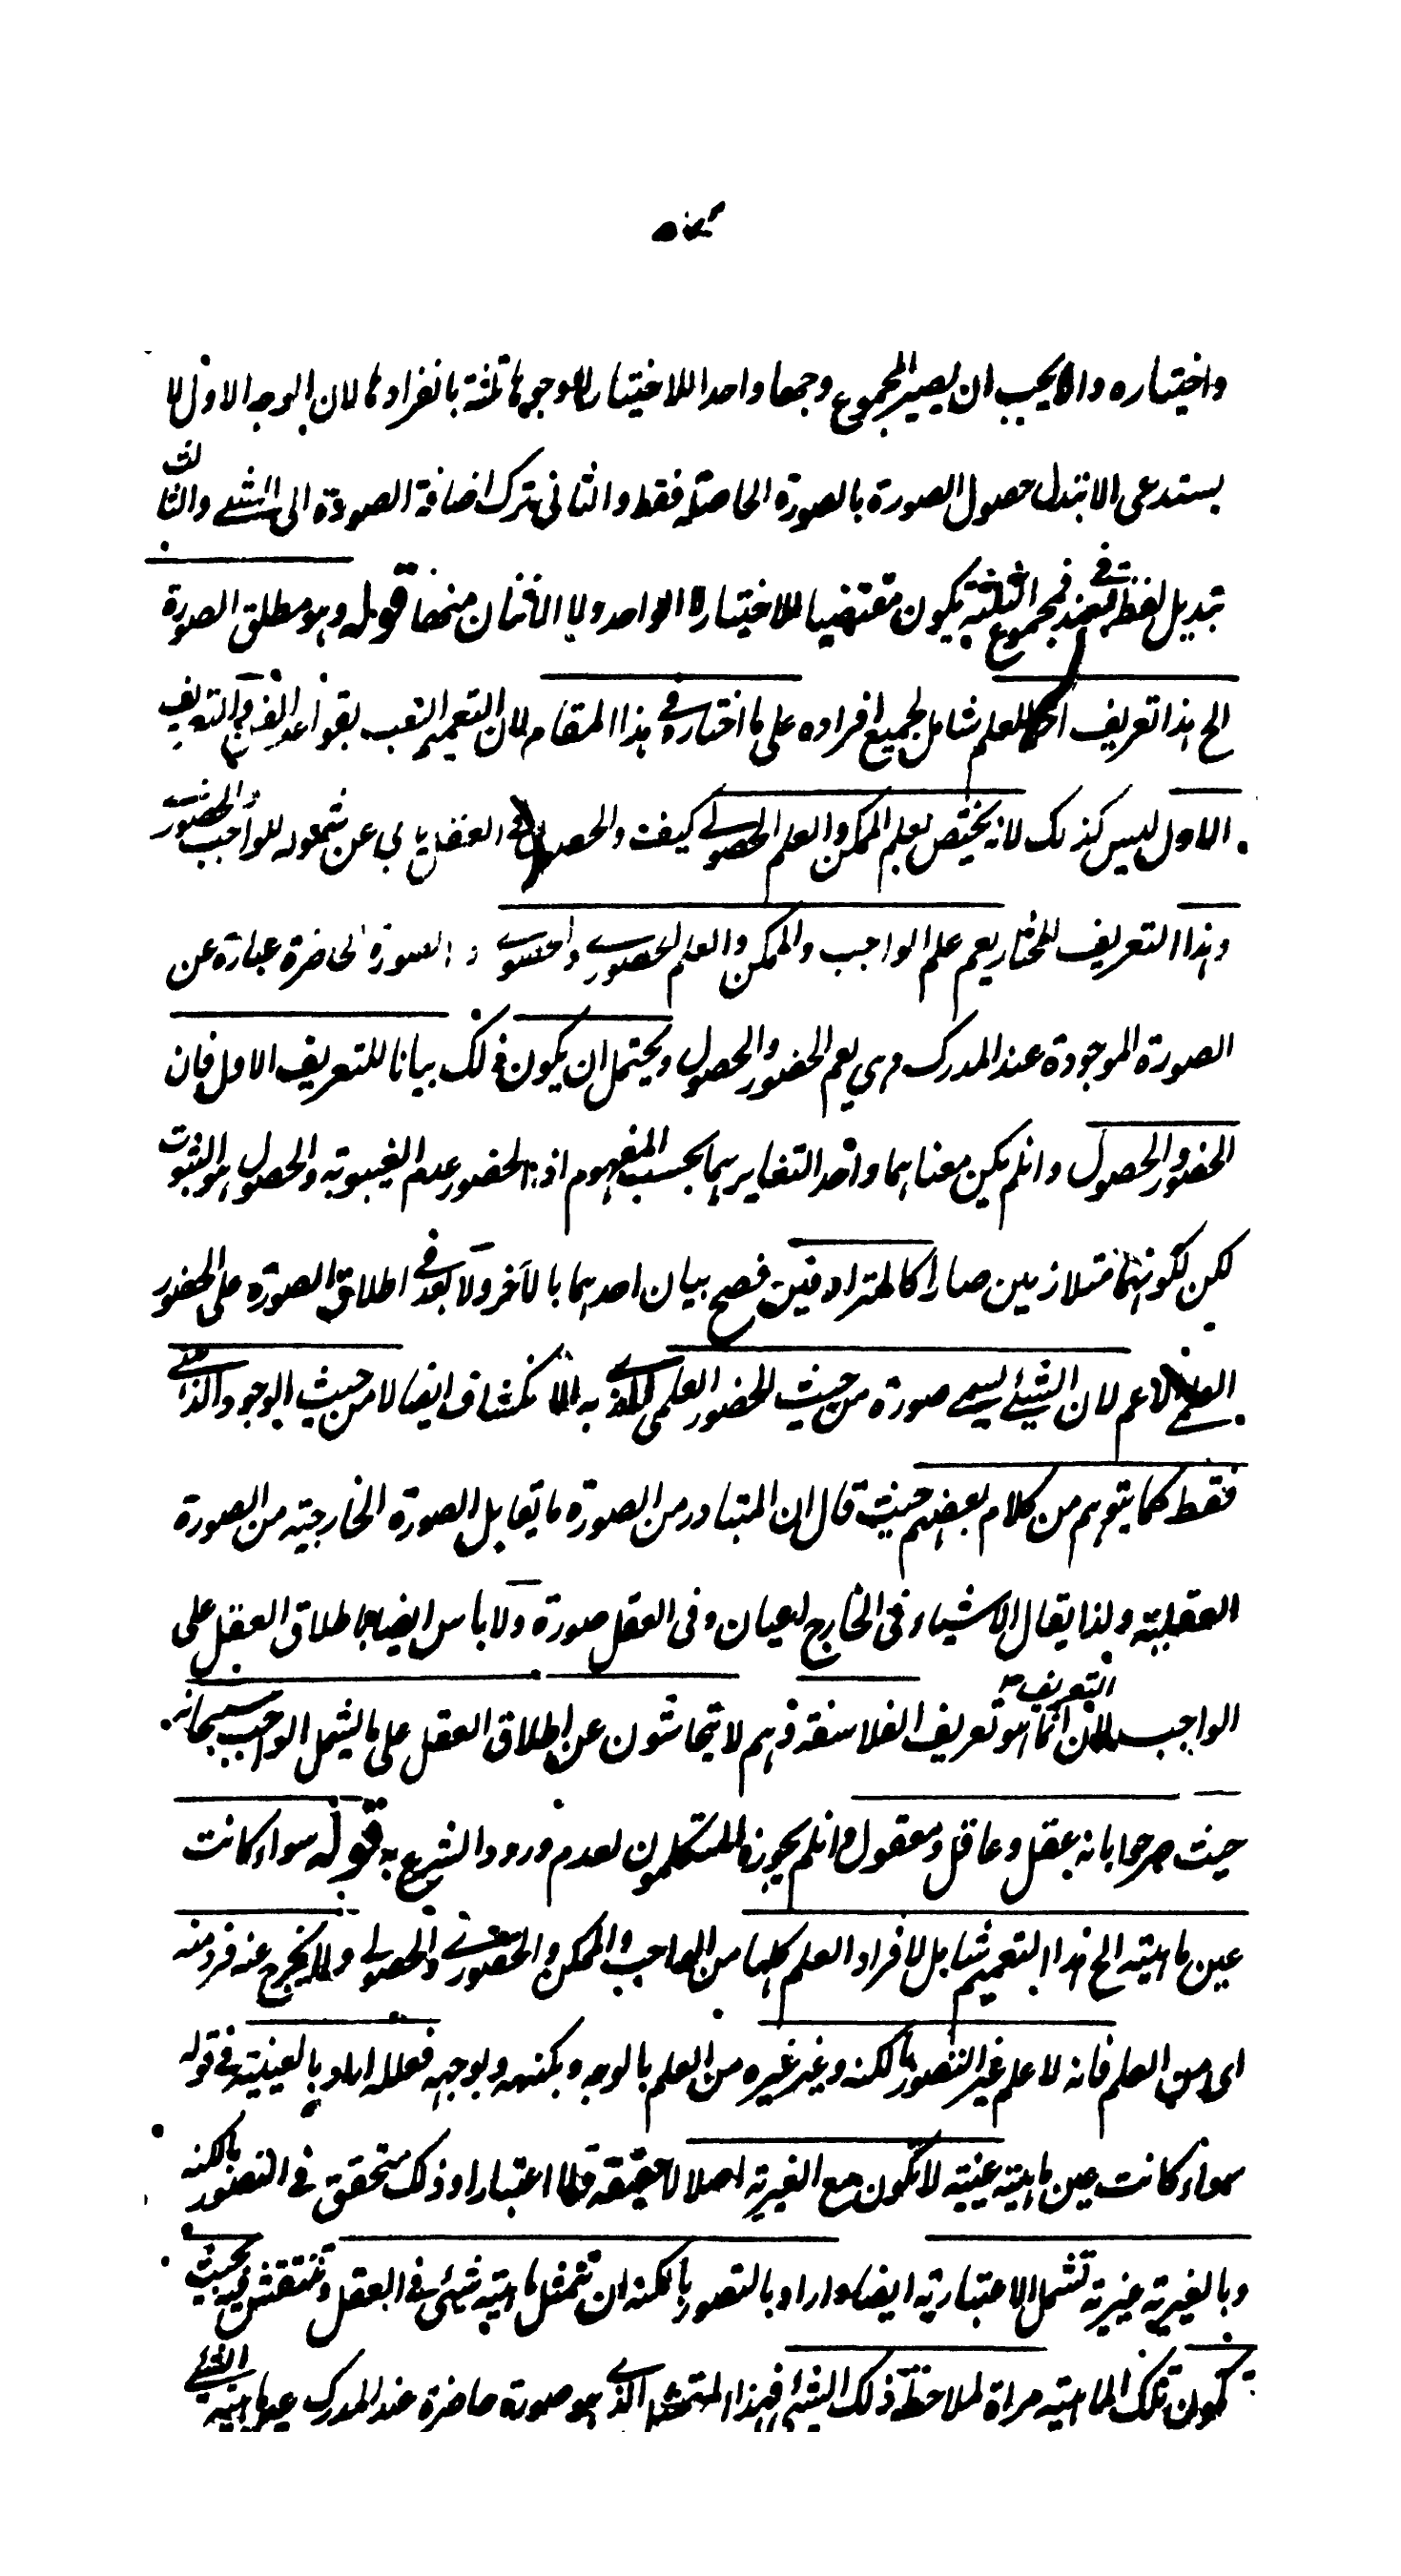 واختياره والا يجب ان يصير المجموع وجها واحدا للاختيار لا وجوها ثلثة بانفرادها لان الوجه الاول لا
يستدعى الا تبدل حصول الصورة بالصورة الحاصلة فقط والثانى ترك اضافة الصورة الى الشئ والثالث
تبديل لفظ فى بعند فمجموع الثلثة يكون مقتضيا للاختيار لا الواحد ولا الاثنان منها قوله وهو مطلق الصورة
الخ هذا تعريف للعلم شامل لجميع افراده على ما اختاره فى هذا المقام لان التعميم انسب بقواعد الفن والتعريف
الاول ليس كذلك لانه يختص بعلم الممكن والعلم الحصولى كيف والحصول فى العقل يابى عن شموله للواجب والحضورى
وهذا التعريف المختار يعم علم الواجب والممكن والعلم الحضورى والحصولى اذ الصورة الحاضرة عبارة عن
الصورة الموجودة عند المدرك وهى يعم الحضور والحصول ويحتمل ان يكون ذلك بيانا للتعريف الاول فان
الحضور والحصول وان لم يكن معناهما واحد التغايرهما بحسب المفهوم اذ الحضور عدم الغيبوبة والحصول هو الثبوت
لكن لكونهما متلازمين صارا كالمترادفين فصح بيان احدهما بالآخر ولا بعد فى اطلاق الصورة على الحضور
العلمى الاعم لان الشئ يسمى صورة من حيث الحضور العلمى الذى به الانكشاف ايضا لا من حيث الوجود الذهنى
فقط كما يتوهم من كلام بعضهم حيث قال ان المتبادر من الصورة ما تقابل الصورة الخارجية من الصورة
العقلية ولذا يقال الاشياء فى الخارج اعيان وفى العقل صورة ولا باس ايضا باطلاق العقل على
الواجب لان التعريف انما هو تعريف الفلاسفة وهم لا يتحاشون عن اطلاق العقل على ما يشمل الواجب سبحانه
حيث صرحوا بانه عقل وعاقل ومعقول وان لم يجوزه المتكلمون لعدم ورود الشرع به قوله سواء كانت
عين ماهيته الخ هذا التعميم شامل لافراد العلم كلها من الواجب والممكن والحضورى والحصولى ولا يخرج عنه فرد منه
اى من العلم فانه لا علم غير التصور بالكنه وغير غيره من العلم بالوجه وبكنهه وبوجهه فلعله اراد بالعينية فى قوله
سواء كانت عين ماهيته عينية لا تكون مع الغيرية اصلا لا حقيقة ولا اعتبارا وذلك متحقق فى التصور بالكنه
وبالغيرية غيرية تشمل الاعتبارية ايضا واراد بالتصور بالكنه ان تتمثل ماهية شئ فى العقل وتنتقش فيه بحيث
تكون تلك الماهية مراة لملاحظة ذلك الشئ فهذا المتمثل الذى هو صورة حاضرة عند المدرك عين ماهية الشئ